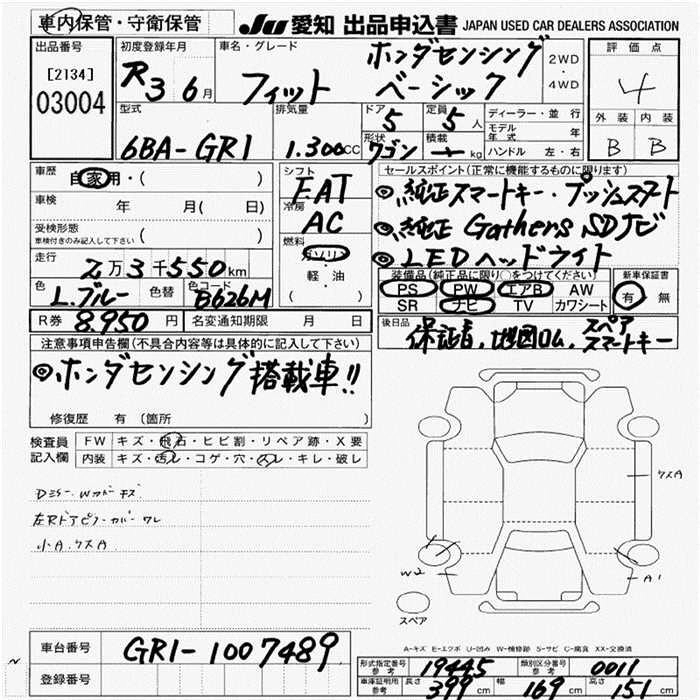 車内保管・守衛保管 JU愛知 出品申込書 JAPAN USED CAR DEALERS ASSOCIATION
出品番号 [2134] 03004
初度登録年月 R3 6月
車名・グレード フィット ホンダセンシング ベーシック
2WD・4WD
評価点 4
外装 内装
B B
型式 6BA-GR1
排気量 1.300CC
ドア 5 定員 5人
形状 ワゴン 積載 kg
ディーラー・並行
モデル年式 年
ハンドル 左・右
車歴 自家用・( )
車検 年 月( 日)
受検形態 車検付きのみ記入して下さい ( )
走行 2万3千550km
色 L.ブルー 色替 色コード B626M
シフト FAT
冷房 AC
燃料 ガソリン 軽・油 ( )
セールスポイント(正常に機能するものに限ります)
◎純正スマートキー・プッシュスタート
◎純正 Gathers SDナビ
◎LEDヘッドライト
装備品(純正品に限り○をつけてください) 新車保証書
PS PW エアB AW 有 無
SR ナビ TV カワシート
R券 8.950円 名変通知期限 月 日
後日品 保証書、地図ROM、スペアスマートキー
注意事項申告欄(不具合内容等は具体的に記入して下さい)
◎ホンダセンシング搭載車!!
修復歴 有 (箇所 )
検査員記入欄 FW キズ・飛石・ヒビ割・リペア跡・X要
内装 キズ・汚レ・コゲ・穴・スレ・キレ・破レ
Dミラー、Wカバー キズ
左RドアピラーカバーワレI
小A.クスA
クスA
W2
A1
スペア
A-キズ E-エクボ U-凹み W-補修跡 S-サビ C-腐食 XX-交換済
車台番号 GR1-1007489
登録番号
形式指定番号 参考 19445 類別区分番号 参考 0011
車庫証明用 参考 長さ 399cm 幅 169cm 高さ 151cm